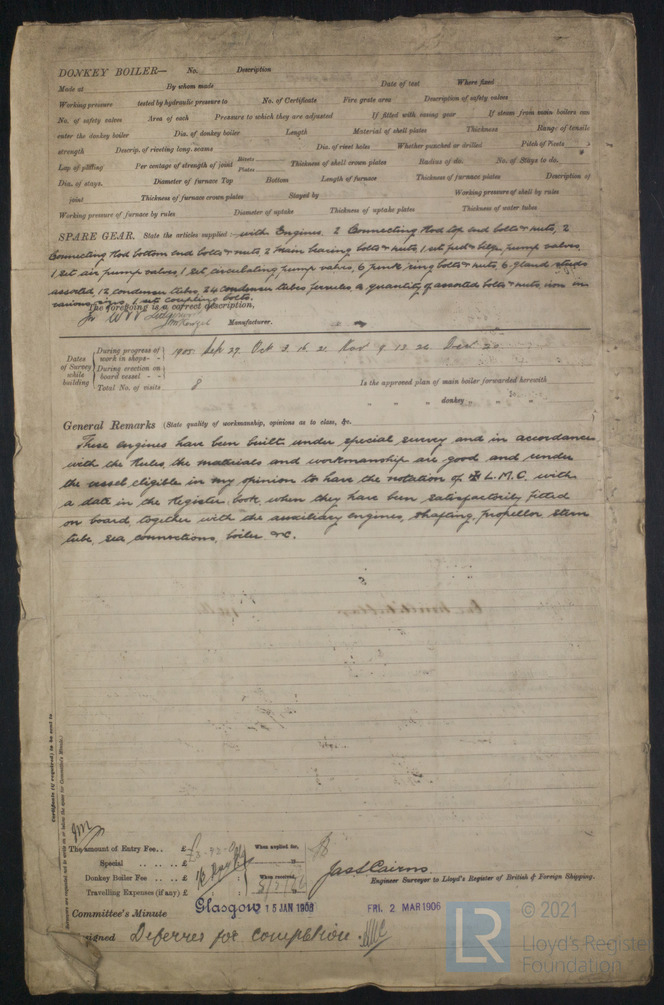 DONKEY BOILER— No. Description
Made at By whom made Date of test Where fixed
Working pressure tested by hydraulic pressure to No. of Certificate Fire grate area Description of safety valves
No. of safety valves Area of each Pressure to which they are adjusted If fitted with easing gear If steam from main boilers can
enter the donkey boiler Dia. of donkey boiler Length Material of shell plates Thickness Range of tensile
strength Descrip. of riveting long. seams Dia. of rivet holes Whether punched or drilled Pitch of rivets
Lap of plating Per centage of strength of joint Rivets Plates Thickness of shell crown plates Radius of do. No. of Stays to do.
Dia. of stays. Diameter of furnace Top Bottom Length of furnace Thickness of furnace plates Description of
joint Thickness of furnace crown plates Stayed by Working pressure of shell by rules
Working pressure of furnace by rules Diameter of uptake Thickness of uptake plates Thickness of water tubes
SPARE GEAR. State the articles supplied:— with Engines. 2 Connecting Rod top end bolts & nuts, 2
Connecting Rod bottom end bolts & nuts, 2 Main bearing bolts & nuts, 1 set feed & bilge pump valves
1 set air pump valves, 1 set circulating pump valves, 6 junk ring bolts & nuts, 6 gland studs
assorted, 12 condenser tubes, 24 condenser tubes ferrules, a quantity of assorted bolts & nuts, iron in
various sizes, 1 set coupling bolts.
The foregoing is a correct description,
Manufacturer.
Dates of Survey while building
During progress of work in shops - - 1905 Sep 29. Oct 3. 16. 21. Nov 9. 13. 22. Dec 20
During erection on board vessel - -
Total No. of visits 8
Is the approved plan of main boiler forwarded herewith
" " " donkey " " "
General Remarks (State quality of workmanship, opinions as to class, &c.
These engines have been built under special survey and in accordance
with the Rules, the materials and workmanship are good and under
the vessel eligible in my opinion to have the notation of L.M.C. with
a date in the Register book, when they have been satisfactorily fitted
on board together with the auxiliary engines, shafting, propellor stern
tube, sea connections, boiler &c.
Certificate (if required) to be sent to
The amount of Entry Fee.. £ When applied for,
Special .. .. .. .. £
Donkey Boiler Fee .. .. £ When received,
Travelling Expenses (if any) £
Jas S Cairns
Engineer Surveyor to Lloyd's Register of British & Foreign Shipping.
Committee's Minute Glasgow 15 JAN 1906 FRI. 2 MAR 1906
Assigned Deferred for completion.
LR © 2021
Lloyd's Register
Foundation